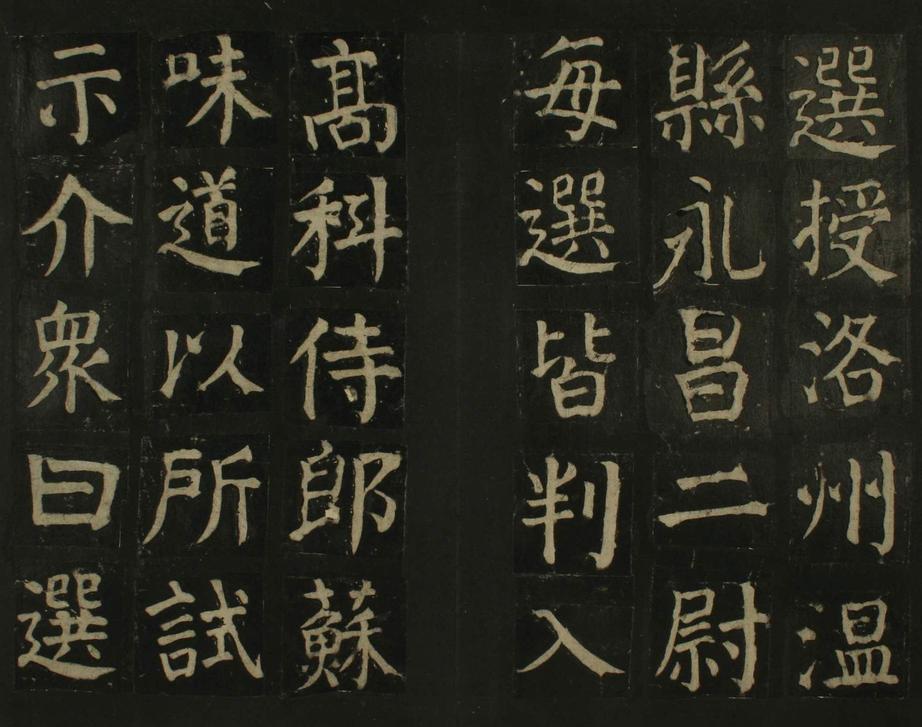 選授洛州温
縣永昌二尉
每選皆判入
髙科侍郎蘇
味道以所試
示介眾曰選